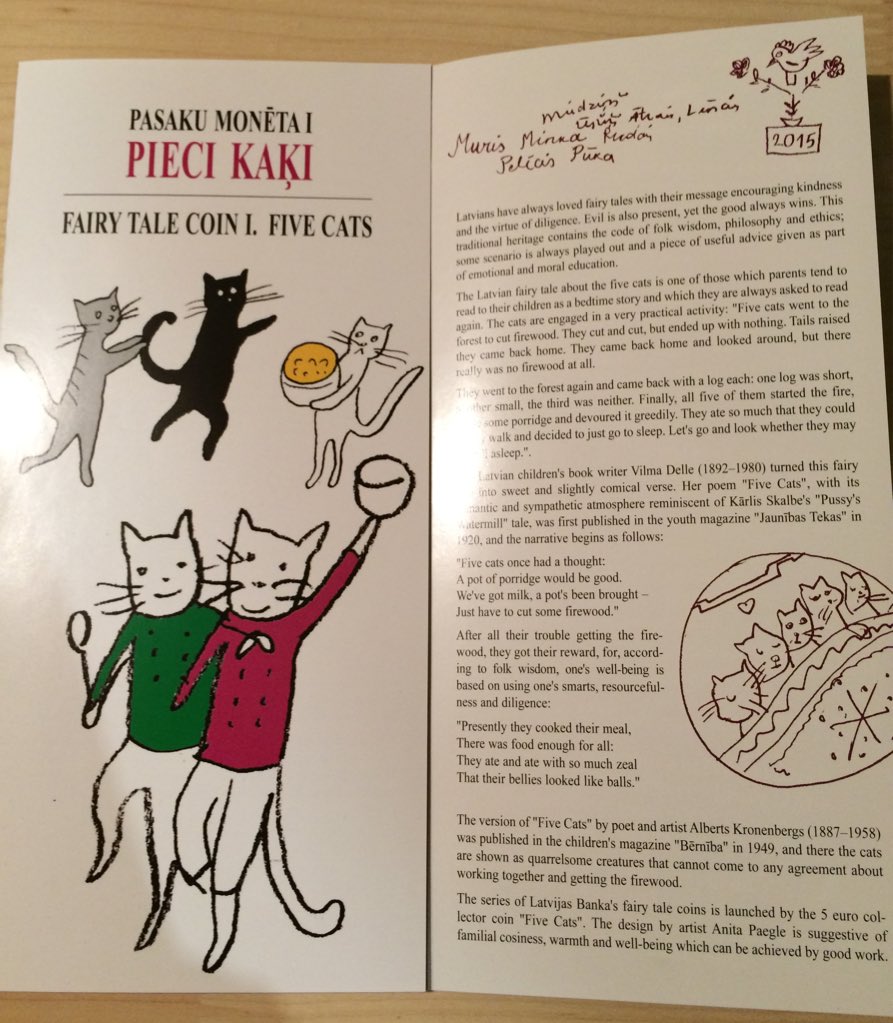 PASAKU MONĒTA I
PIECI KAĶI
FAIRY TALE COIN I. FIVE CATS
Muris
Pūka
2015
Latvians have always loved fairy tales with their message encouraging kindness
and the virtue of diligence. Evil is also present, yet the good always wins. This
traditional heritage contains the code of folk wisdom, philosophy and ethics;
some scenario is always played out and a piece of useful advice given as part
of emotional and moral education.
The Latvian fairy tale about the five cats is one of those which parents tend to
read to their children as a bedtime story and which they are always asked to read
again. The cats are engaged in a very practical activity: "Five cats went to the
forest to cut firewood. They cut and cut, but ended up with nothing. Tails raised
they came back home. They came back home and looked around, but there
really was no firewood at all.
They went to the forest again and came back with a log each: one log was short,
another small, the third was neither. Finally, all five of them started the fire,
some porridge and devoured it greedily. They ate so much that they could
walk and decided to just go to sleep. Let's go and look whether they may
asleep.".
Latvian children's book writer Vilma Delle (1892–1980) turned this fairy
into sweet and slightly comical verse. Her poem "Five Cats", with its
romantic and sympathetic atmosphere reminiscent of Kārlis Skalbe's "Pussy's
Watermill" tale, was first published in the youth magazine "Jaunības Tekas" in
1920, and the narrative begins as follows:
"Five cats once had a thought:
A pot of porridge would be good.
We've got milk, a pot's been brought –
Just have to cut some firewood."
After all their trouble getting the fire-
wood, they got their reward, for, accord-
ing to folk wisdom, one's well-being is
based on using one's smarts, resourceful-
ness and diligence:
"Presently they cooked their meal,
There was food enough for all:
They ate and ate with so much zeal
That their bellies looked like balls."
The version of "Five Cats" by poet and artist Alberts Kronenbergs (1887–1958)
was published in the children's magazine "Bērnība" in 1949, and there the cats
are shown as quarrelsome creatures that cannot come to any agreement about
working together and getting the firewood.
The series of Latvijas Banka's fairy tale coins is launched by the 5 euro col-
lector coin "Five Cats". The design by artist Anita Paegle is suggestive of
familial cosiness, warmth and well-being which can be achieved by good work.